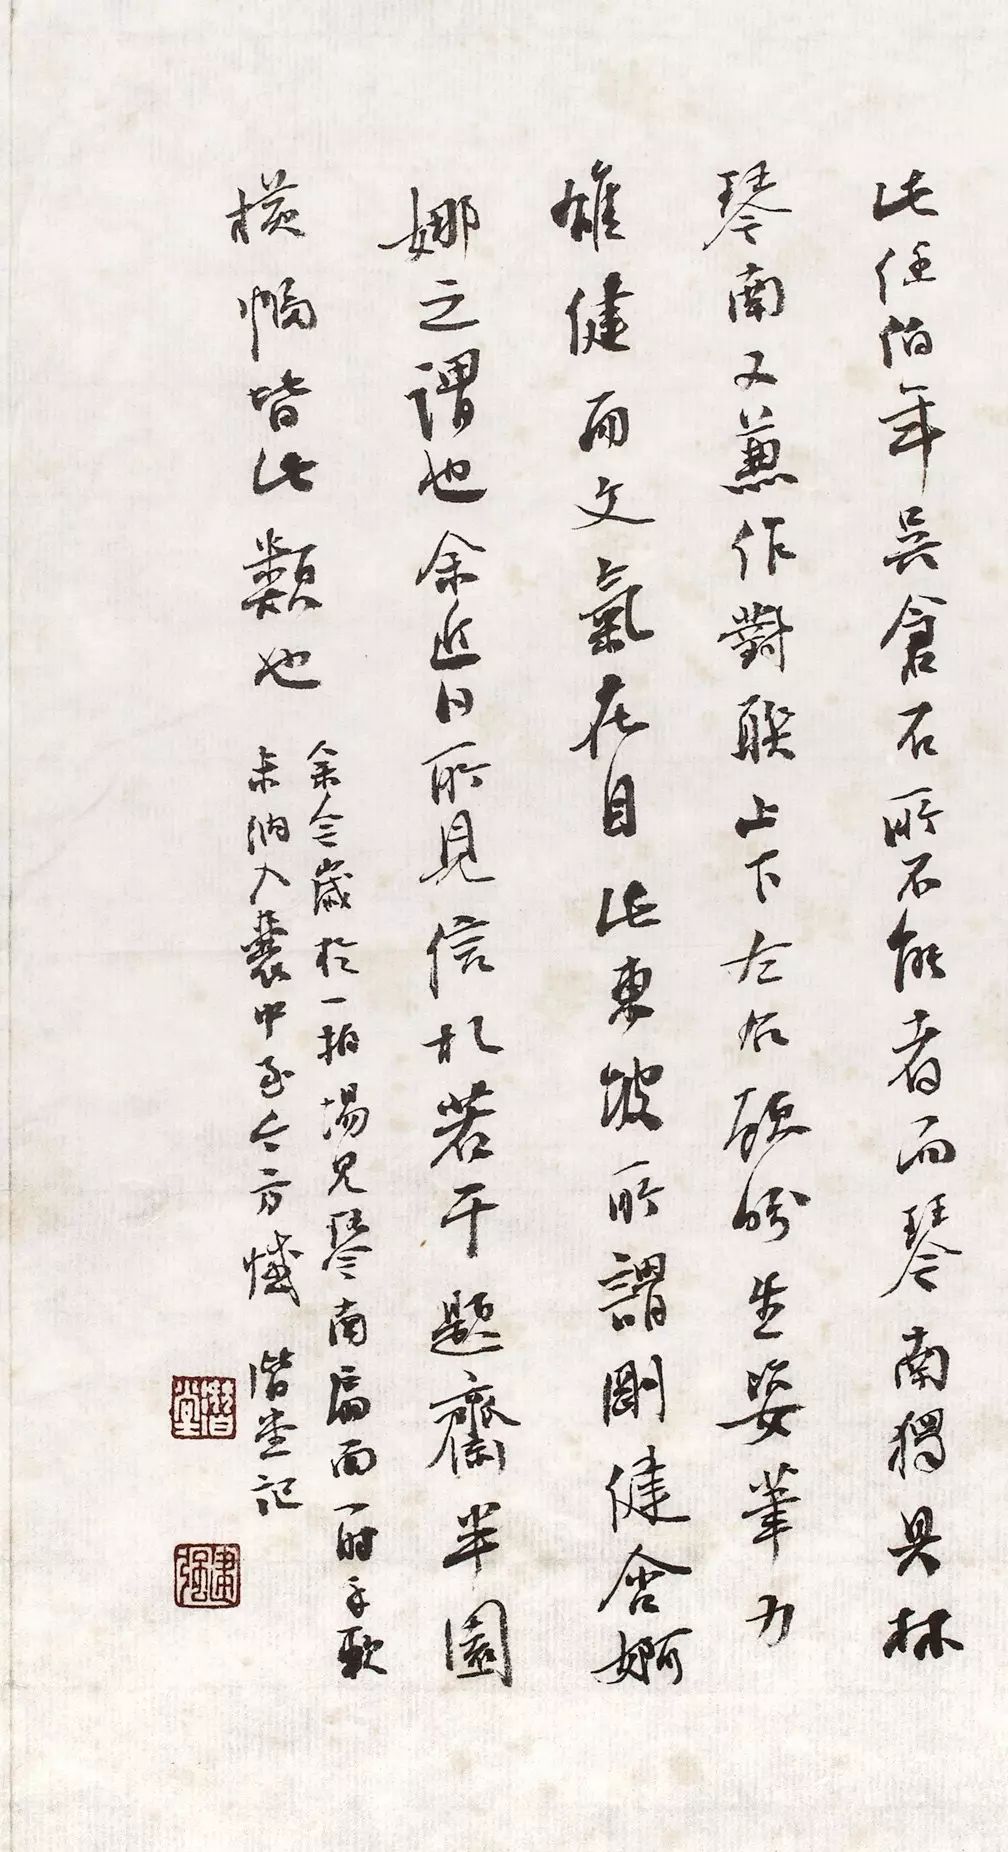 此任伯年吳倉石所不能者而琴南獨具林
琴南又兼作對聯上下左右顧盼生姿筆力
雄健而文氣在目此東坡所謂剛健含婀
娜之謂也余近日所見信札若干題齋半園
橫幅皆此類也
余今歲於一拍場見琴南扇面一時手軟
未納入囊中至今方憾 潛堂記
潛堂
建強